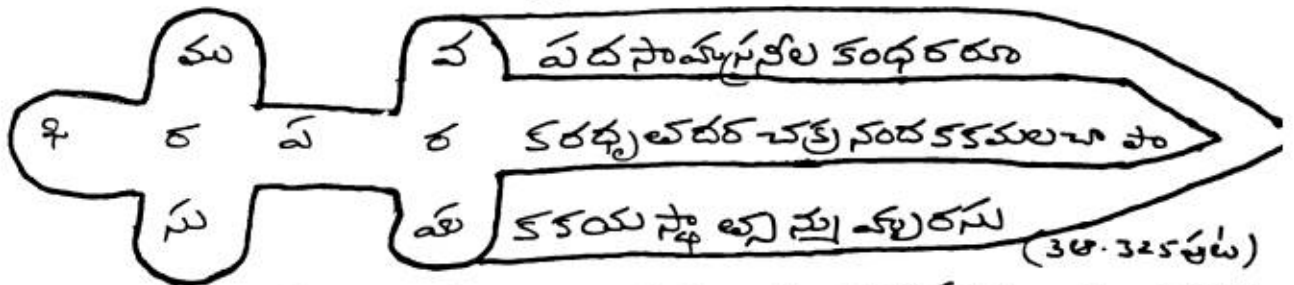 ము వ పదసాహస్రనీల కంధరరూ
శి ర ప ర కరధృతదర చక్ర నందకకమలచా పా
సు హ కకయ స్థా త్పా న్ను హ్య రసు
(3ఆ. 325 పుట)